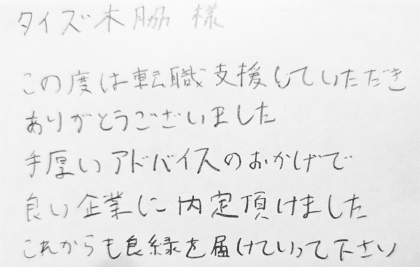 タイズ木脇 様
この度は転職支援していただき
ありがとうございました
手厚いアドバイスのおかげで
良い企業に内定頂けました
これからも良縁を届けていって下さい